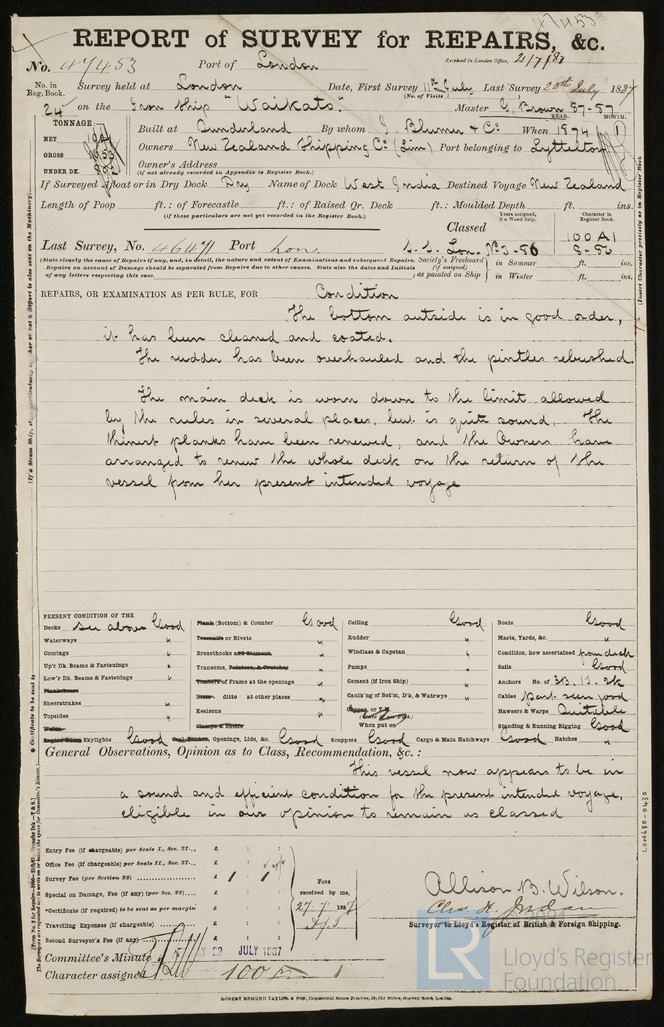 REPORT of SURVEY for REPAIRS, &c.
No. 47453 Port of London Received in London Office, 21/7/87
No. in Reg. Book. Survey held at London Date, First Survey 11th July Last Survey 20th July 1887
(No. of Visits)
24 on the Iron Ship "Waikato." Master G. Brown 87-87
TONNAGE:
NET
GROSS
UNDER DK.
Built at Sunderland By whom J. Blumer & Co When 1874 YEAR. MONTH. 1
Owners New Zealand Shipping Co (Lim) Port belonging to Lyttelton
Owner's Address
(if not already recorded in Appendix to Register Book.)
If Surveyed Afloat or in Dry Dock Dry Name of Dock West India Destined Voyage New Zealand
Length of Poop ft.: of Forecastle ft.: of Raised Qr. Deck ft.: Moulded Depth ft. ins.
(if these particulars are not yet recorded in the Register Book.)
Classed
Years assigned, if a Wood Ship.
Character in Register Book.
100 A1
Last Survey, No. 46471 Port Lon. S. S. Lon. No 3-86 8-86
(State clearly the cause of Repairs if any, and, in detail, the nature and extent of Examinations and subsequent Repairs.
Repairs on account of Damage should be separated from Repairs due to other causes. State also the dates and Initials
of any letters respecting this case.
Society's Freeboard (if assigned) as painted on Ship in Summer ft. ins.
in Winter ft. ins.
REPAIRS, OR EXAMINATION AS PER RULE, FOR Condition
The bottom outside is in good order,
it has been cleaned and coated.
The rudder has been overhauled and the pintles rebushed.
The main deck is worn down to the limit allowed
by the rules in several places, but is quite sound. The
thinnest planks have been renewed, and the Owners have
arranged to renew the whole deck on the return of the
vessel from her present intended voyage
PRESENT CONDITION OF THE
Decks see above Good
Waterways "
Comings "
Up'r Dk. Beams & Fastenings "
Low'r Dk. Beams & Fastenings "
Planksheers
Sheerstrakes "
Topsides "
Wales
Skylights Good
Plank (Bottom) & Counter Good
Treenails or Rivets "
Breasthooks and Stemson "
Transoms, Pointers, & Crutches "
Timbers of Frame at the openings "
Ditto ditto at other places "
Keelsons "
Clamps & Shelfs
Openings, Lids, &c. Good
Ceiling Good
Rudder "
Windlass & Capstan "
Pumps "
Cement (if Iron Ship) "
Caulk'ng of Bot'm, D'k, & Watrwys "
Copper, or Y.M.
When put on
Scuppers Good Cargo & Main Hatchways Good Hatches "
Boats Good
Masts, Yards, &c. "
Condition, how ascertained from deck
Sails Good
Anchors No. of 3B. 1S. 2k
Cables part seen good
Hawsers & Warps Suitable
Standing & Running Rigging Good
General Observations, Opinion as to Class, Recommendation, &c.:
This vessel now appears to be in
a sound and efficient condition for the present intended voyage,
eligible in our opinion to remain as classed
Entry Fee (if chargeable) per Scale I., Sec. 27... £ : :
Office Fee (if chargeable) per Scale II., Sec. 27... £ : :
Survey Fee (per Section 28) £ 1 : 1 :
Special on Damage, Fee (if any) (per Sec. 28) £ : :
*Certificate (if required) to be sent as per margin £ : :
Travelling Expenses (if chargeable) £ : :
Second Surveyor's Fee (if any) £ : :
Fees received by me,
27/7/1887
Allison B. Wilson.
Chas. H. Jordan
Surveyor to Lloyd's Register of British & Foreign Shipping.
Committee's Minute FRIDAY 22 JULY 1887
Character assigned 100 A 1
ROBERT EDMUND TAYLOR & SON, Commercial Steam Printers, 19, Old Street, Goswell Road, London.
© 2021
LR
Lloyd's Register
Foundation